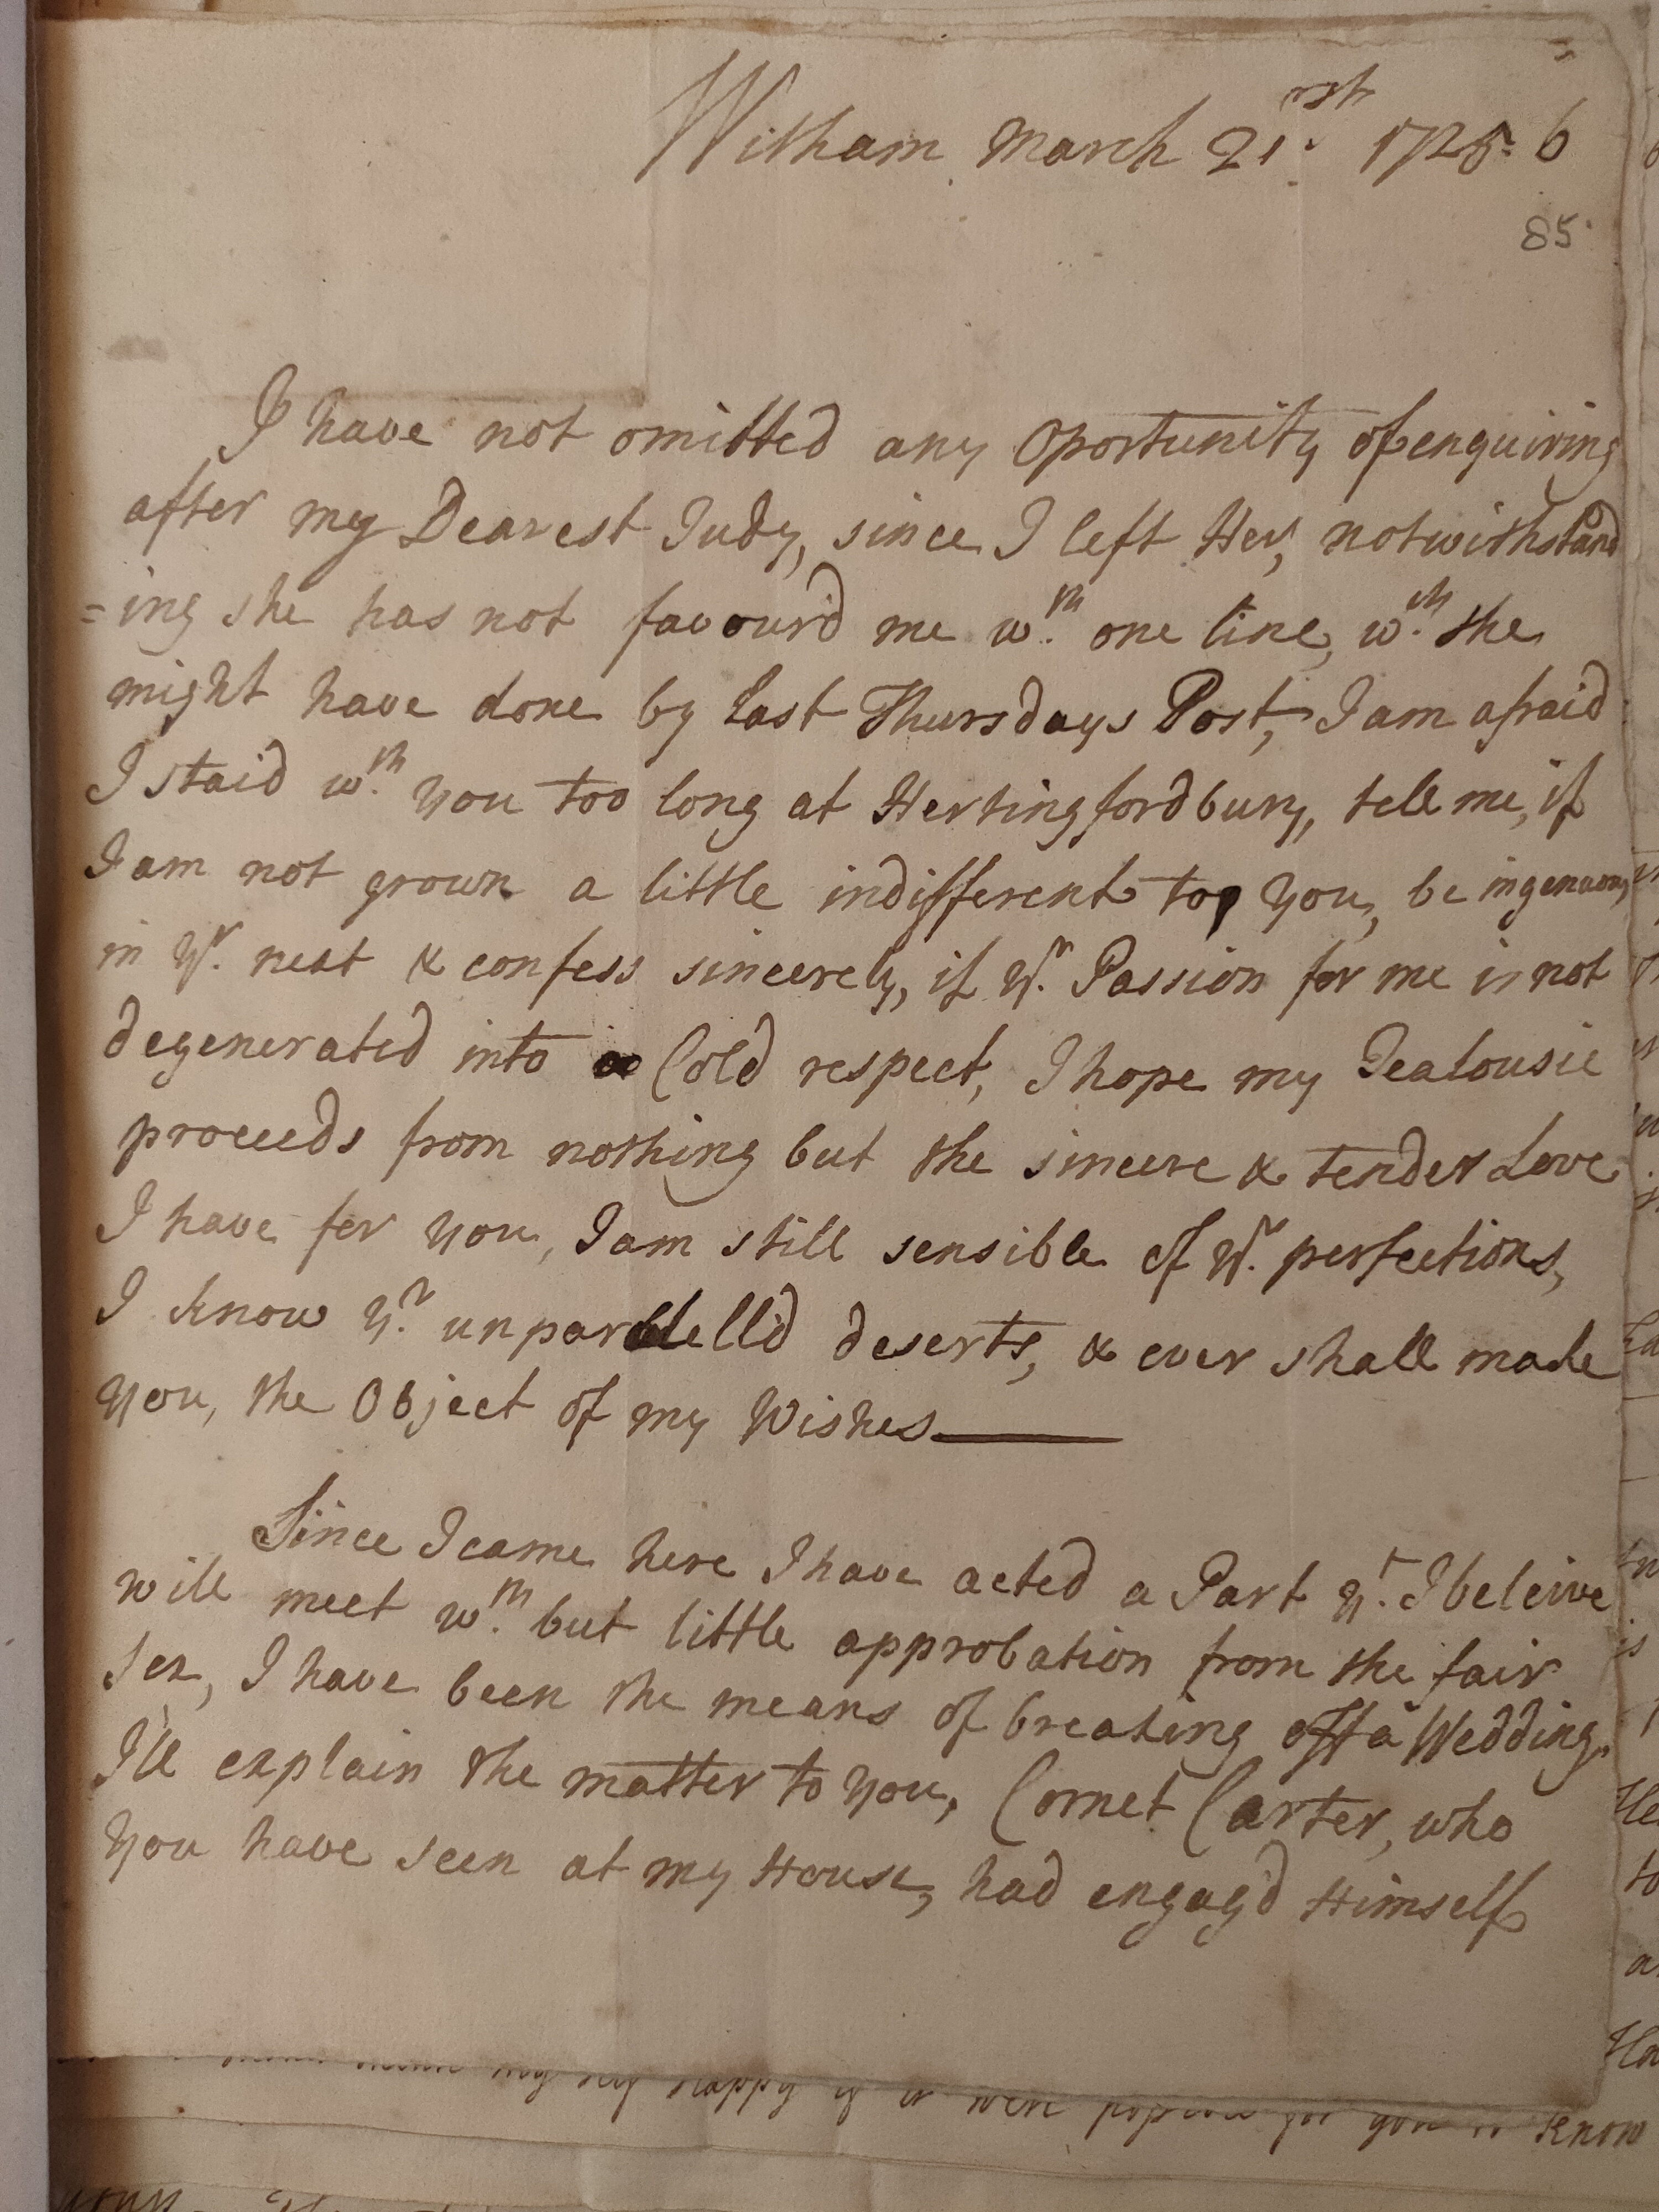 Witham March 21.st 1725:6
85
I have not omitted any Oportunity of enquiring
after my Dearest Judy, since I left Her, notwithstand
=ing she has not favour'd me w.th one line, w.ch she
might have done by Last Thursdays Post, I am afraid
I staid w.th you too long at Hertingfordbury, tell me, if
I am not grown a little indifferent to you, be ingenuous
in y.r next & confess sincerely, if y.r Passion for me is not
degenerated into a Cold respect, I hope my Jealousie
proceeds from nothing but the sincere & tender Love
I have for you, I am still sensible of y.r perfections,
I know y.r unparalelld deserts, & ever shall make
you, the Object of my Wishes
Since I came here I have acted a Part y.t I beleive
will meet w.th but little approbation from the fair
sex, I have been the means of breaking off a Wedding.
I'll explain the matter to you, Cornet Carter, who
you have seen at my House, had engag'd Himself
happy if it were for you to know